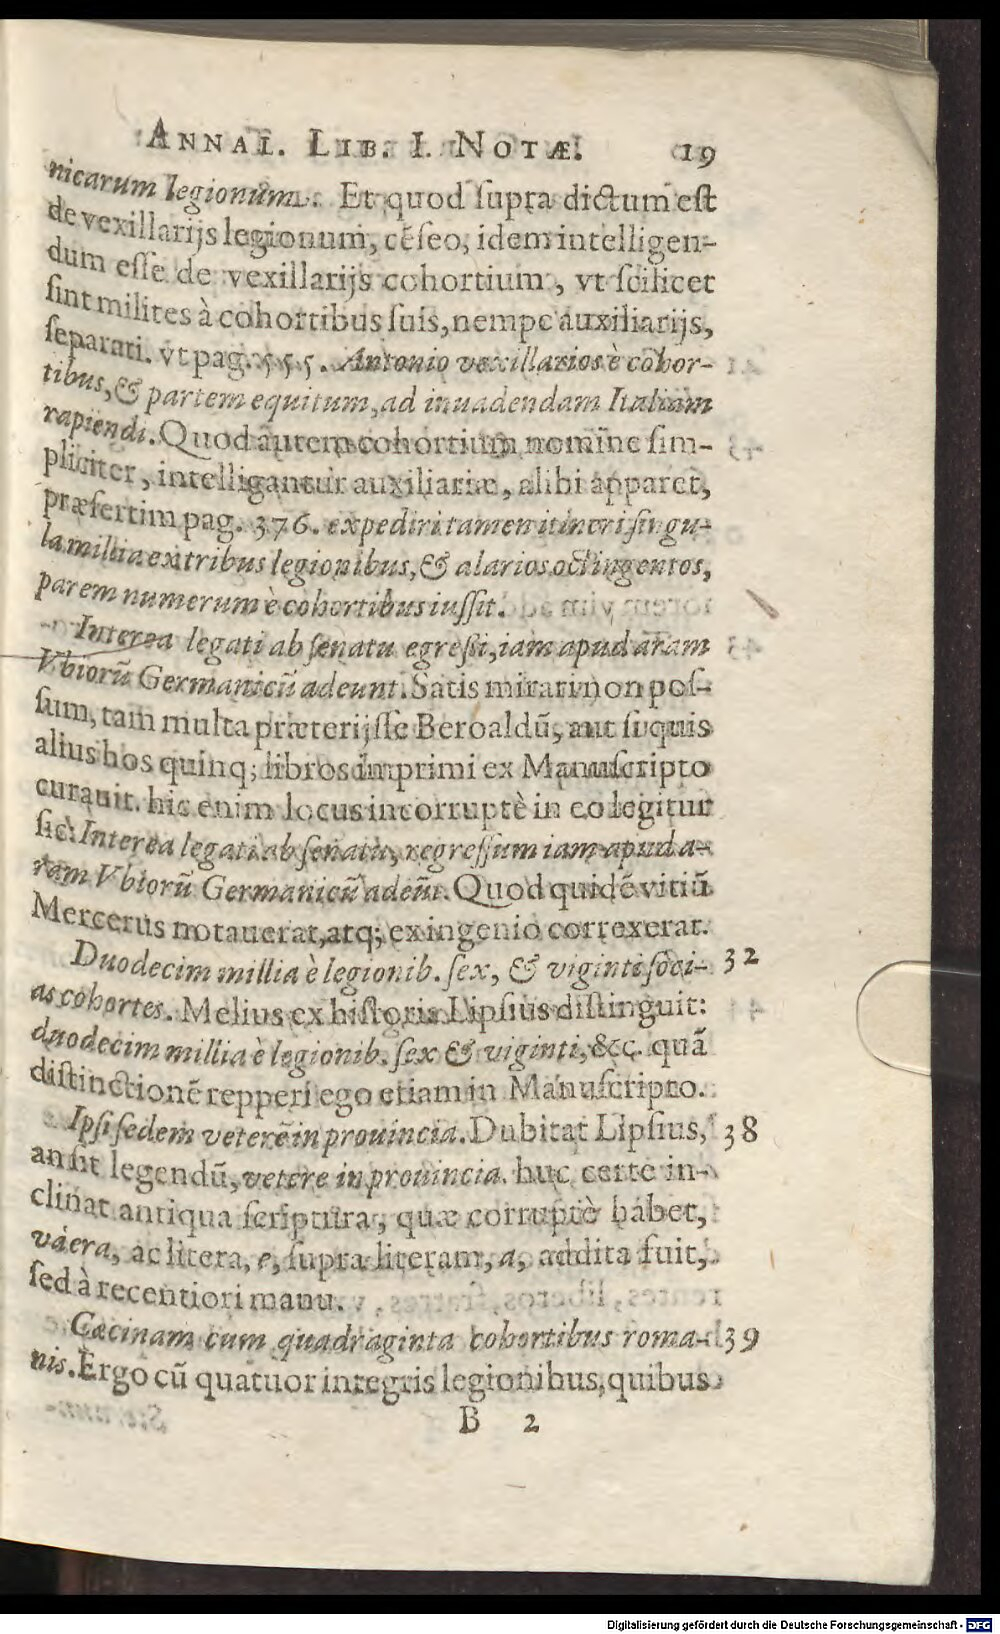 ANNAL. LIB. I. NOTÆ. 19
nicarum legionum. Et quod ſupra dictum eſt
de vexillarijs legionum, cēſeo, idem intelligen-
dum eſſe de vexillarijs cohortium, vt ſcilicet
ſint milites à cohortibus ſuis, nempe auxiliarijs,
ſeparati. vt pag. 555. Antonio vexillarios è cohor-
tibus, & partem equitum, ad inuadendam Italiam
rapiendi. Quod autem cohortium nomine ſim-
pliciter, intelligantur auxiliariæ, alibi apparet,
præſertim pag. 376. expediri tamen itineri ſingu-
la millia ex tribus legionibus, & alarios octingentos,
parem numerum è cohortibus iuſſit.
Interea legati ab ſenatu egreſſi, iam apud aram
Vbiorū Germanicū adeunt. Satis mirari non poſ-
ſum, tam multa præterijſſe Beroaldū, aut ſi quis
alius hos quinq; libros imprimi ex Manuſcripto
curauit. hic enim locus incorruptè in eo legitur
ſic: Interea legati ab ſenatu, regreſſum iam apud a-
ram Vbiorū Germanicū adeūt. Quod quidē vitiū
Mercerus notauerat, atq; ex ingenio correxerat.
Duodecim millia è legionib. ſex, & viginti ſoci- 32
as cohortes. Melius ex hiſtoria Lipſius diſtinguit:
duodecim millia è legionib. ſex & viginti, &c. quā
diſtinctionē repperi ego etiam in Manuſcripto.
Ipſi ſedem veterē in prouincia. Dubitat Lipſius, 38
an ſit legendū, vetere in prouincia. huc certe in-
clinat antiqua ſcriptura, quæ corruptè habet,
váera, ac litera, e, ſupra literam, a, addita fuit,
ſed à recentiori manu.
Cæcinam cum quadraginta cohortibus roma- 39
nis. Ergo cū quatuor integris legionibus, quibus
B 2
Digitalisierung gefördert durch die Deutsche Forschungsgemeinschaft - DFG